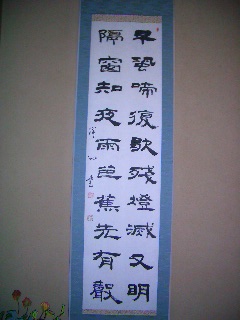 早蛩啼復歇殘燈滅又明
隔窗知夜雨芭蕉先有聲